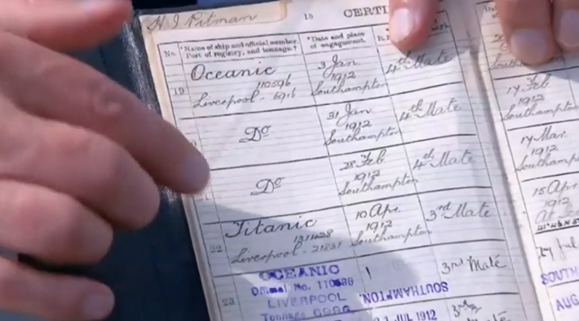 H. J. Pitman
19 CERTI
No. *Name of ship and official number, Port of registry, and tonnage.†
*Date and place of engagement.
19 Oceanic
110596
Liverpool - 6916
3 Jan
1912
Southampton
4th Mate
Do
31 Jan
1912
Southampton
4th Mate
17 Feb
1912
Do
28 Feb
1912
Southampton
4th Mate
17 Mar
1912
22 Titanic
131428
Liverpool - 21831
10 Apr.
1912
Southampton
3rd Mate
15 Apr
1912
At
23 OCEANIC
Official No. 110596
LIVERPOOL
Tonnage
SOUTHAMPTON.
1912
3rd Mate
SOUTH
AUG
3rd